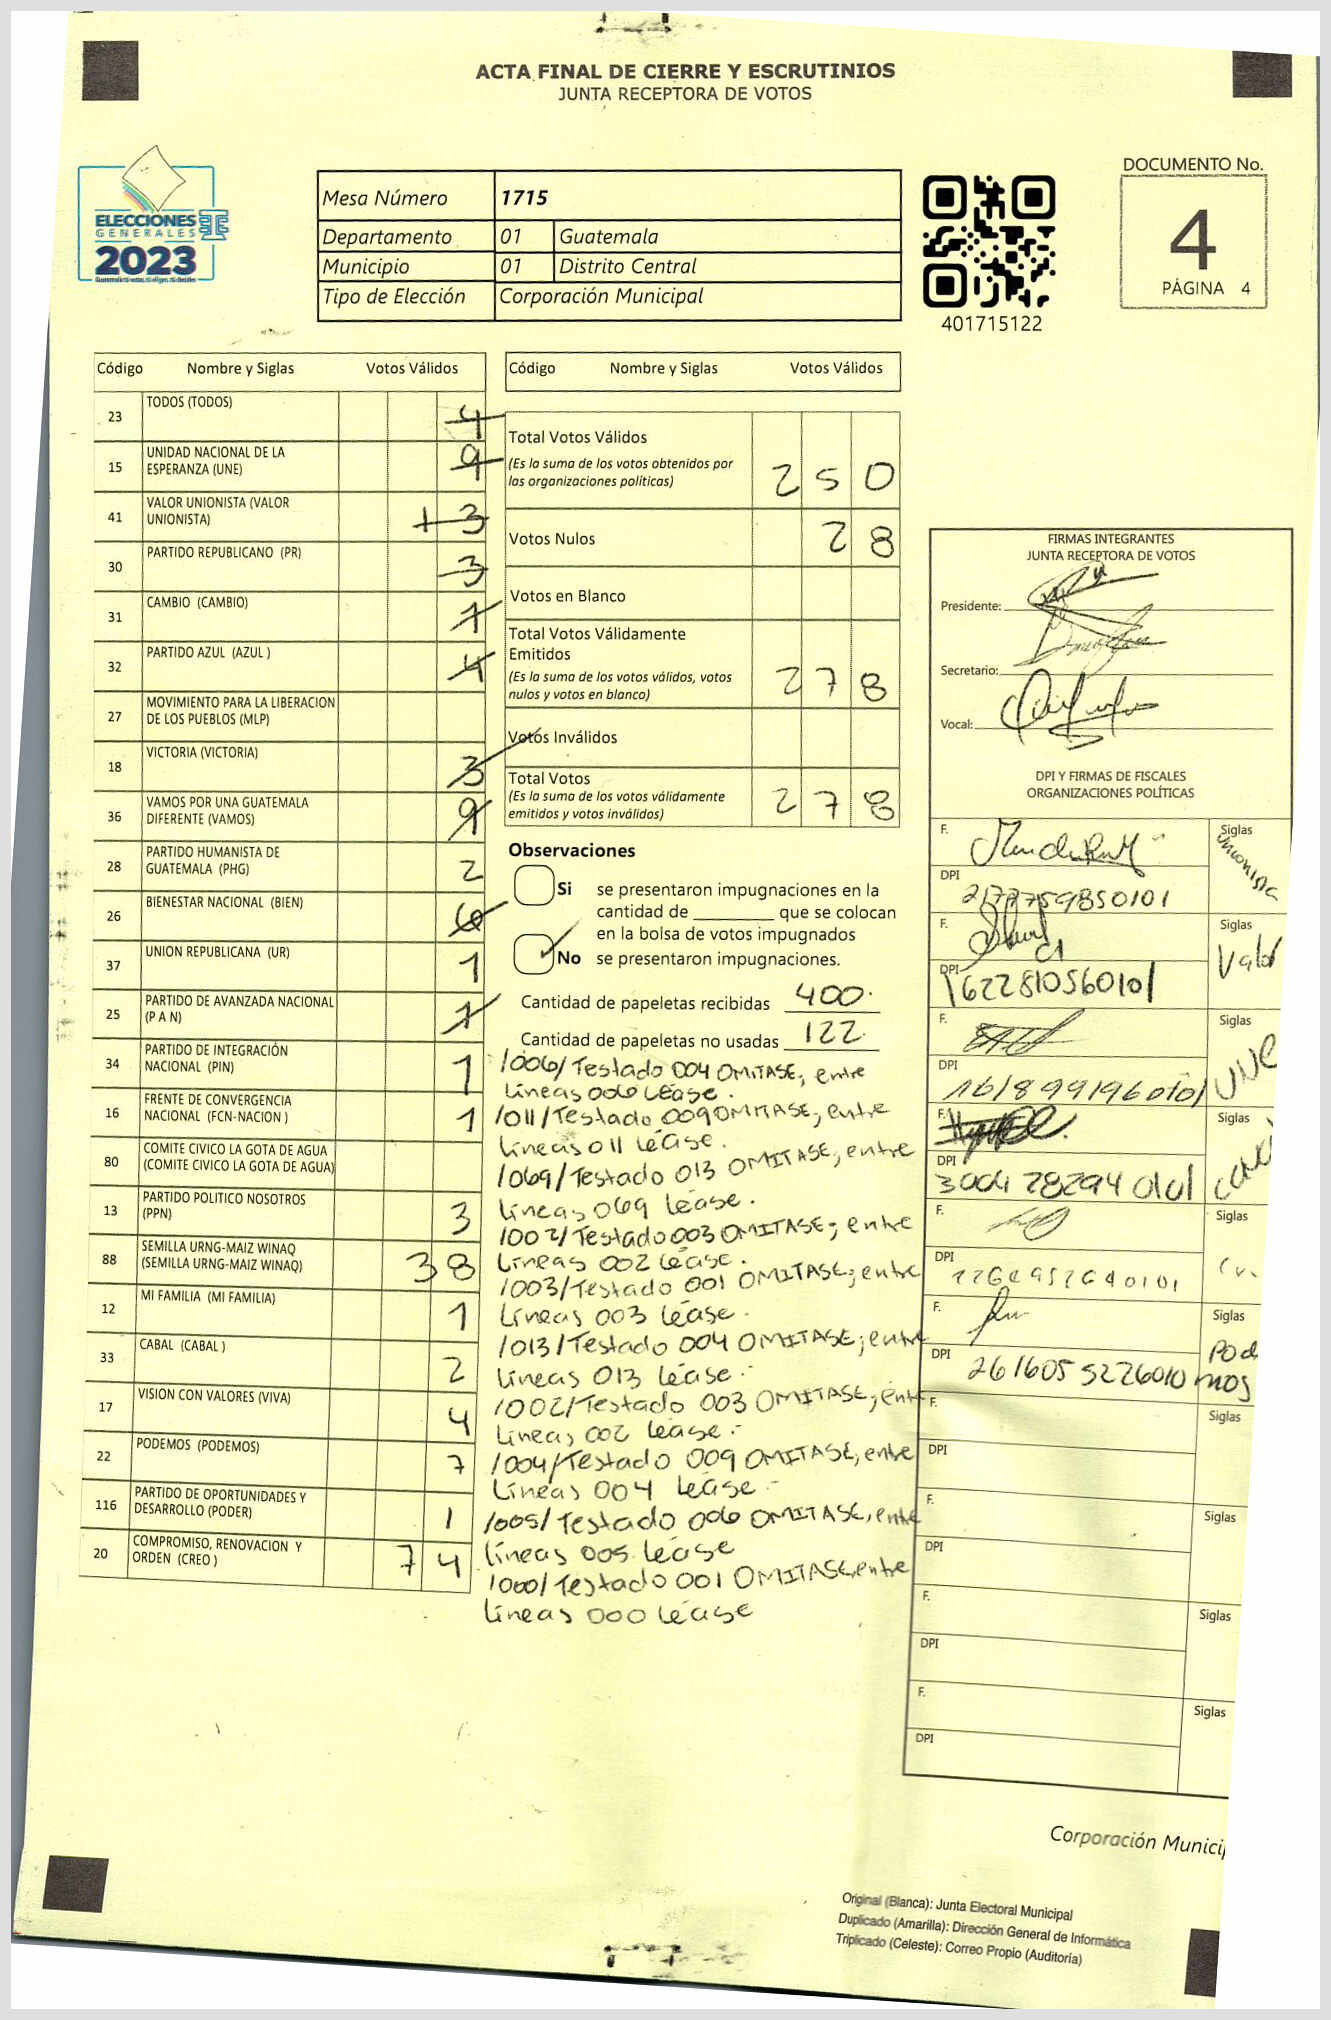 ACTA FINAL DE CIERRE Y ESCRUTINIOS
JUNTA RECEPTORA DE VOTOS
ELECCIONES
GENERALES
2023
Mesa Número 1715
Departamento 01 Guatemala
Municipio 01 Distrito Central
Tipo de Elección Corporación Municipal
401715122
DOCUMENTO No.
4
PÁGINA 4
Código Nombre y Siglas Votos Válidos
23 TODOS (TODOS) 4
15 UNIDAD NACIONAL DE LA ESPERANZA (UNE) 9
41 VALOR UNIONISTA (VALOR UNIONISTA) 13
30 PARTIDO REPUBLICANO (PR) 3
31 CAMBIO (CAMBIO) 1
32 PARTIDO AZUL (AZUL) 4
27 MOVIMIENTO PARA LA LIBERACION DE LOS PUEBLOS (MLP)
18 VICTORIA (VICTORIA) 3
36 VAMOS POR UNA GUATEMALA DIFERENTE (VAMOS) 9
28 PARTIDO HUMANISTA DE GUATEMALA (PHG) 2
26 BIENESTAR NACIONAL (BIEN) 6
37 UNION REPUBLICANA (UR) 1
25 PARTIDO DE AVANZADA NACIONAL (P A N) 1
34 PARTIDO DE INTEGRACIÓN NACIONAL (PIN) 1
16 FRENTE DE CONVERGENCIA NACIONAL (FCN-NACION) 1
80 COMITE CIVICO LA GOTA DE AGUA (COMITE CIVICO LA GOTA DE AGUA)
13 PARTIDO POLITICO NOSOTROS (PPN) 3
88 SEMILLA URNG-MAIZ WINAQ (SEMILLA URNG-MAIZ WINAQ) 38
12 MI FAMILIA (MI FAMILIA) 1
33 CABAL (CABAL) 2
17 VISION CON VALORES (VIVA) 4
22 PODEMOS (PODEMOS) 7
116 PARTIDO DE OPORTUNIDADES Y DESARROLLO (PODER) 1
20 COMPROMISO, RENOVACION Y ORDEN (CREO) 74
Código Nombre y Siglas Votos Válidos
Total Votos Válidos 250
(Es la suma de los votos obtenidos por
las organizaciones políticas)
Votos Nulos 28
Votos en Blanco
Total Votos Válidamente
Emitidos 278
(Es la suma de los votos válidos, votos
nulos y votos en blanco)
Votos Inválidos
Total Votos 278
(Es la suma de los votos válidamente
emitidos y votos inválidos)
Observaciones
Si se presentaron impugnaciones en la
cantidad de ________ que se colocan
en la bolsa de votos impugnados
No se presentaron impugnaciones.
Cantidad de papeletas recibidas 400.
Cantidad de papeletas no usadas 122.
/006/Testado 004 OMITASE, entre
Líneas 006 Léase.
/011/Testado 009 OMITASE, entre
Líneas 011 Léase.
/069/Testado 013 OMITASE, entre
Líneas 069 Léase.
/002/Testado 003 OMITASE; entre
Líneas 002 Léase.
/003/Testado 001 OMITASE; entre
Líneas 003 Léase.
/013/Testado 004 OMITASE; entre
Líneas 013 Léase.
/002/Testado 003 OMITASE, entre
Líneas 002 Léase.
/004/Testado 009 OMITASE, entre
Líneas 004 Léase
/005/Testado 006 OMITASE, entre
Líneas 005 Léase
/000/Testado 001 OMITASE, entre
Líneas 000 Léase
FIRMAS INTEGRANTES
JUNTA RECEPTORA DE VOTOS
Presidente:
Secretario:
Vocal:
DPI Y FIRMAS DE FISCALES
ORGANIZACIONES POLÍTICAS
F. Siglas
Unionista
DPI
F. Siglas
Valor
DPI 1622810560101
F. Siglas
UNE
DPI 1618991960101
F. Siglas
DPI 3004282940101
F. Siglas
DPI
F. Siglas
Podemos
DPI 2616055226010
F. Siglas
DPI
F. Siglas
DPI
F. Siglas
DPI
F. Siglas
DPI
Corporación Munici
Original (Blanca): Junta Electoral Municipal
Duplicado (Amarilla): Dirección General de Informática
Triplicado (Celeste): Correo Propio (Auditoría)